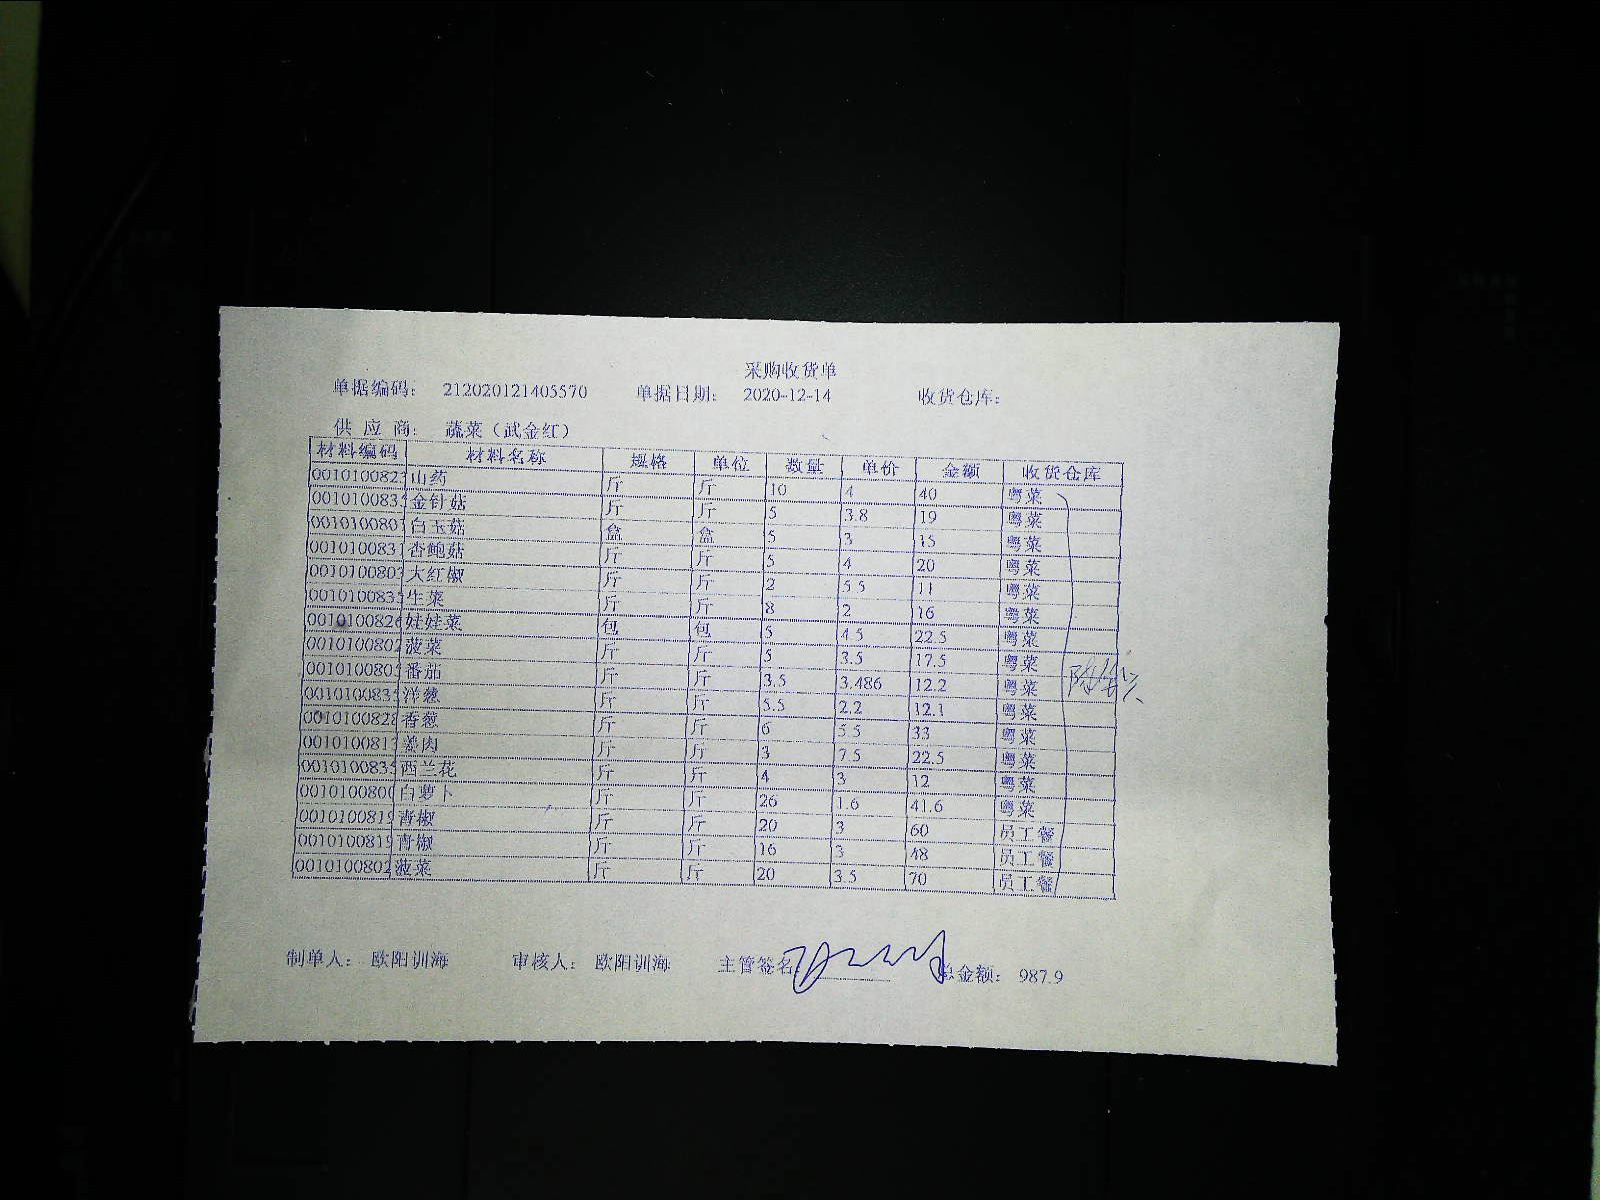 采购收货单
单据编码： 212020121405570 单据日期： 2020-12-14 收货仓库：
供 应 商： 蔬菜（武金红）
材料编码 材料名称 规格 单位 数量 单价 金额 收货仓库
001010082 山药 斤 斤 10 4 40 粤菜
001010083 金针菇 斤 斤 5 3.8 19 粤菜
001010080 白玉菇 盒 盒 5 3 15 粤菜
001010083 杏鲍菇 斤 斤 5 4 20 粤菜
001010080 大红椒 斤 斤 2 5.5 11 粤菜
001010083 生菜 斤 斤 8 2 16 粤菜
001010082 娃娃菜 包 包 5 4.5 22.5 粤菜
0010100802 菠菜 斤 斤 5 3.5 17.5 粤菜
001010080 番茄 斤 斤 3.5 3.486 12.2 粤菜
001010083 洋葱 斤 斤 5.5 2.2 12.1 粤菜
001010082 香葱 斤 斤 6 5.5 33 粤菜
001010081 姜肉 斤 斤 3 7.5 22.5 粤菜
001010083 西兰花 斤 斤 4 3 12 粤菜
001010080 白萝卜 斤 斤 26 1.6 41.6 粤菜
001010081 青椒 斤 斤 20 3 60 员工餐
001010081 青椒 斤 斤 16 3 48 员工餐
0010100802 菠菜 斤 斤 20 3.5 70 员工餐
制单人： 欧阳训海 审核人： 欧阳训海 主管签名： 总金额： 987.9